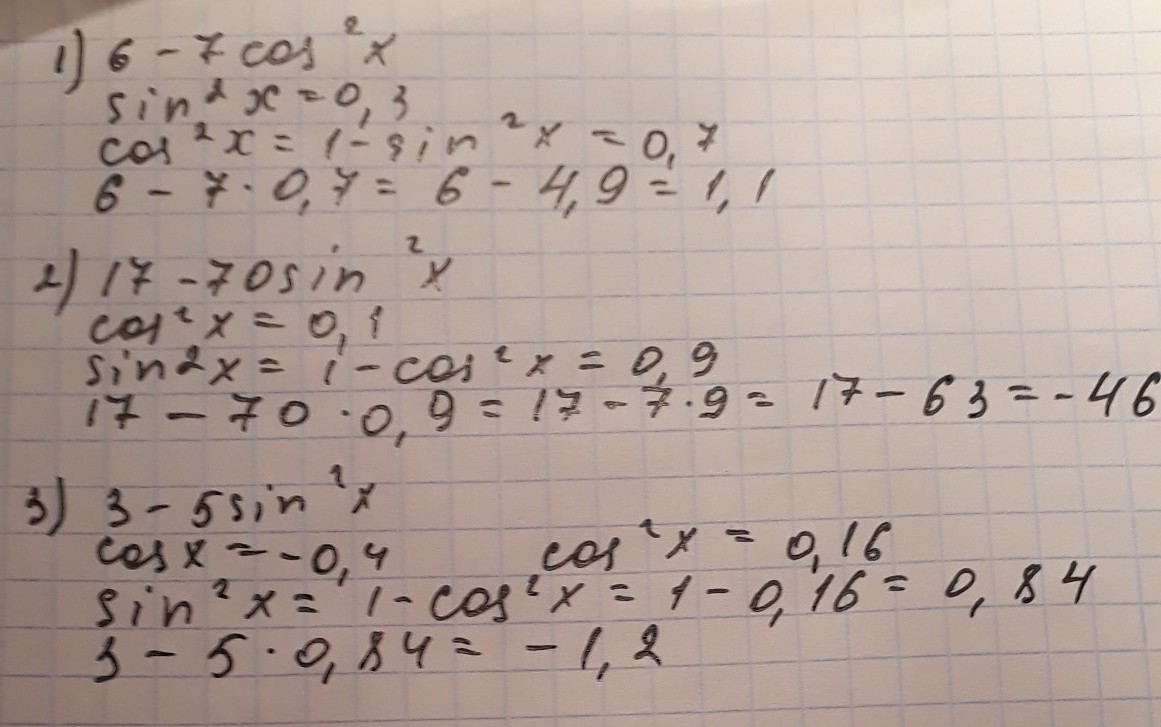 1) 6 - 7 cos²x
sin²x = 0,3
cos²x = 1 - sin²x = 0,7
6 - 7 · 0,7 = 6 - 4,9 = 1,1
2) 17 - 70 sin²x
cos²x = 0,1
sin2x = 1 - cos²x = 0,9
17 - 70 · 0,9 = 17 - 7 · 9 = 17 - 63 = -46
3) 3 - 5 sin²x
cosx = -0,4 cos²x = 0,16
sin²x = 1 - cos²x = 1 - 0,16 = 0,84
3 - 5 · 0,84 = -1,2